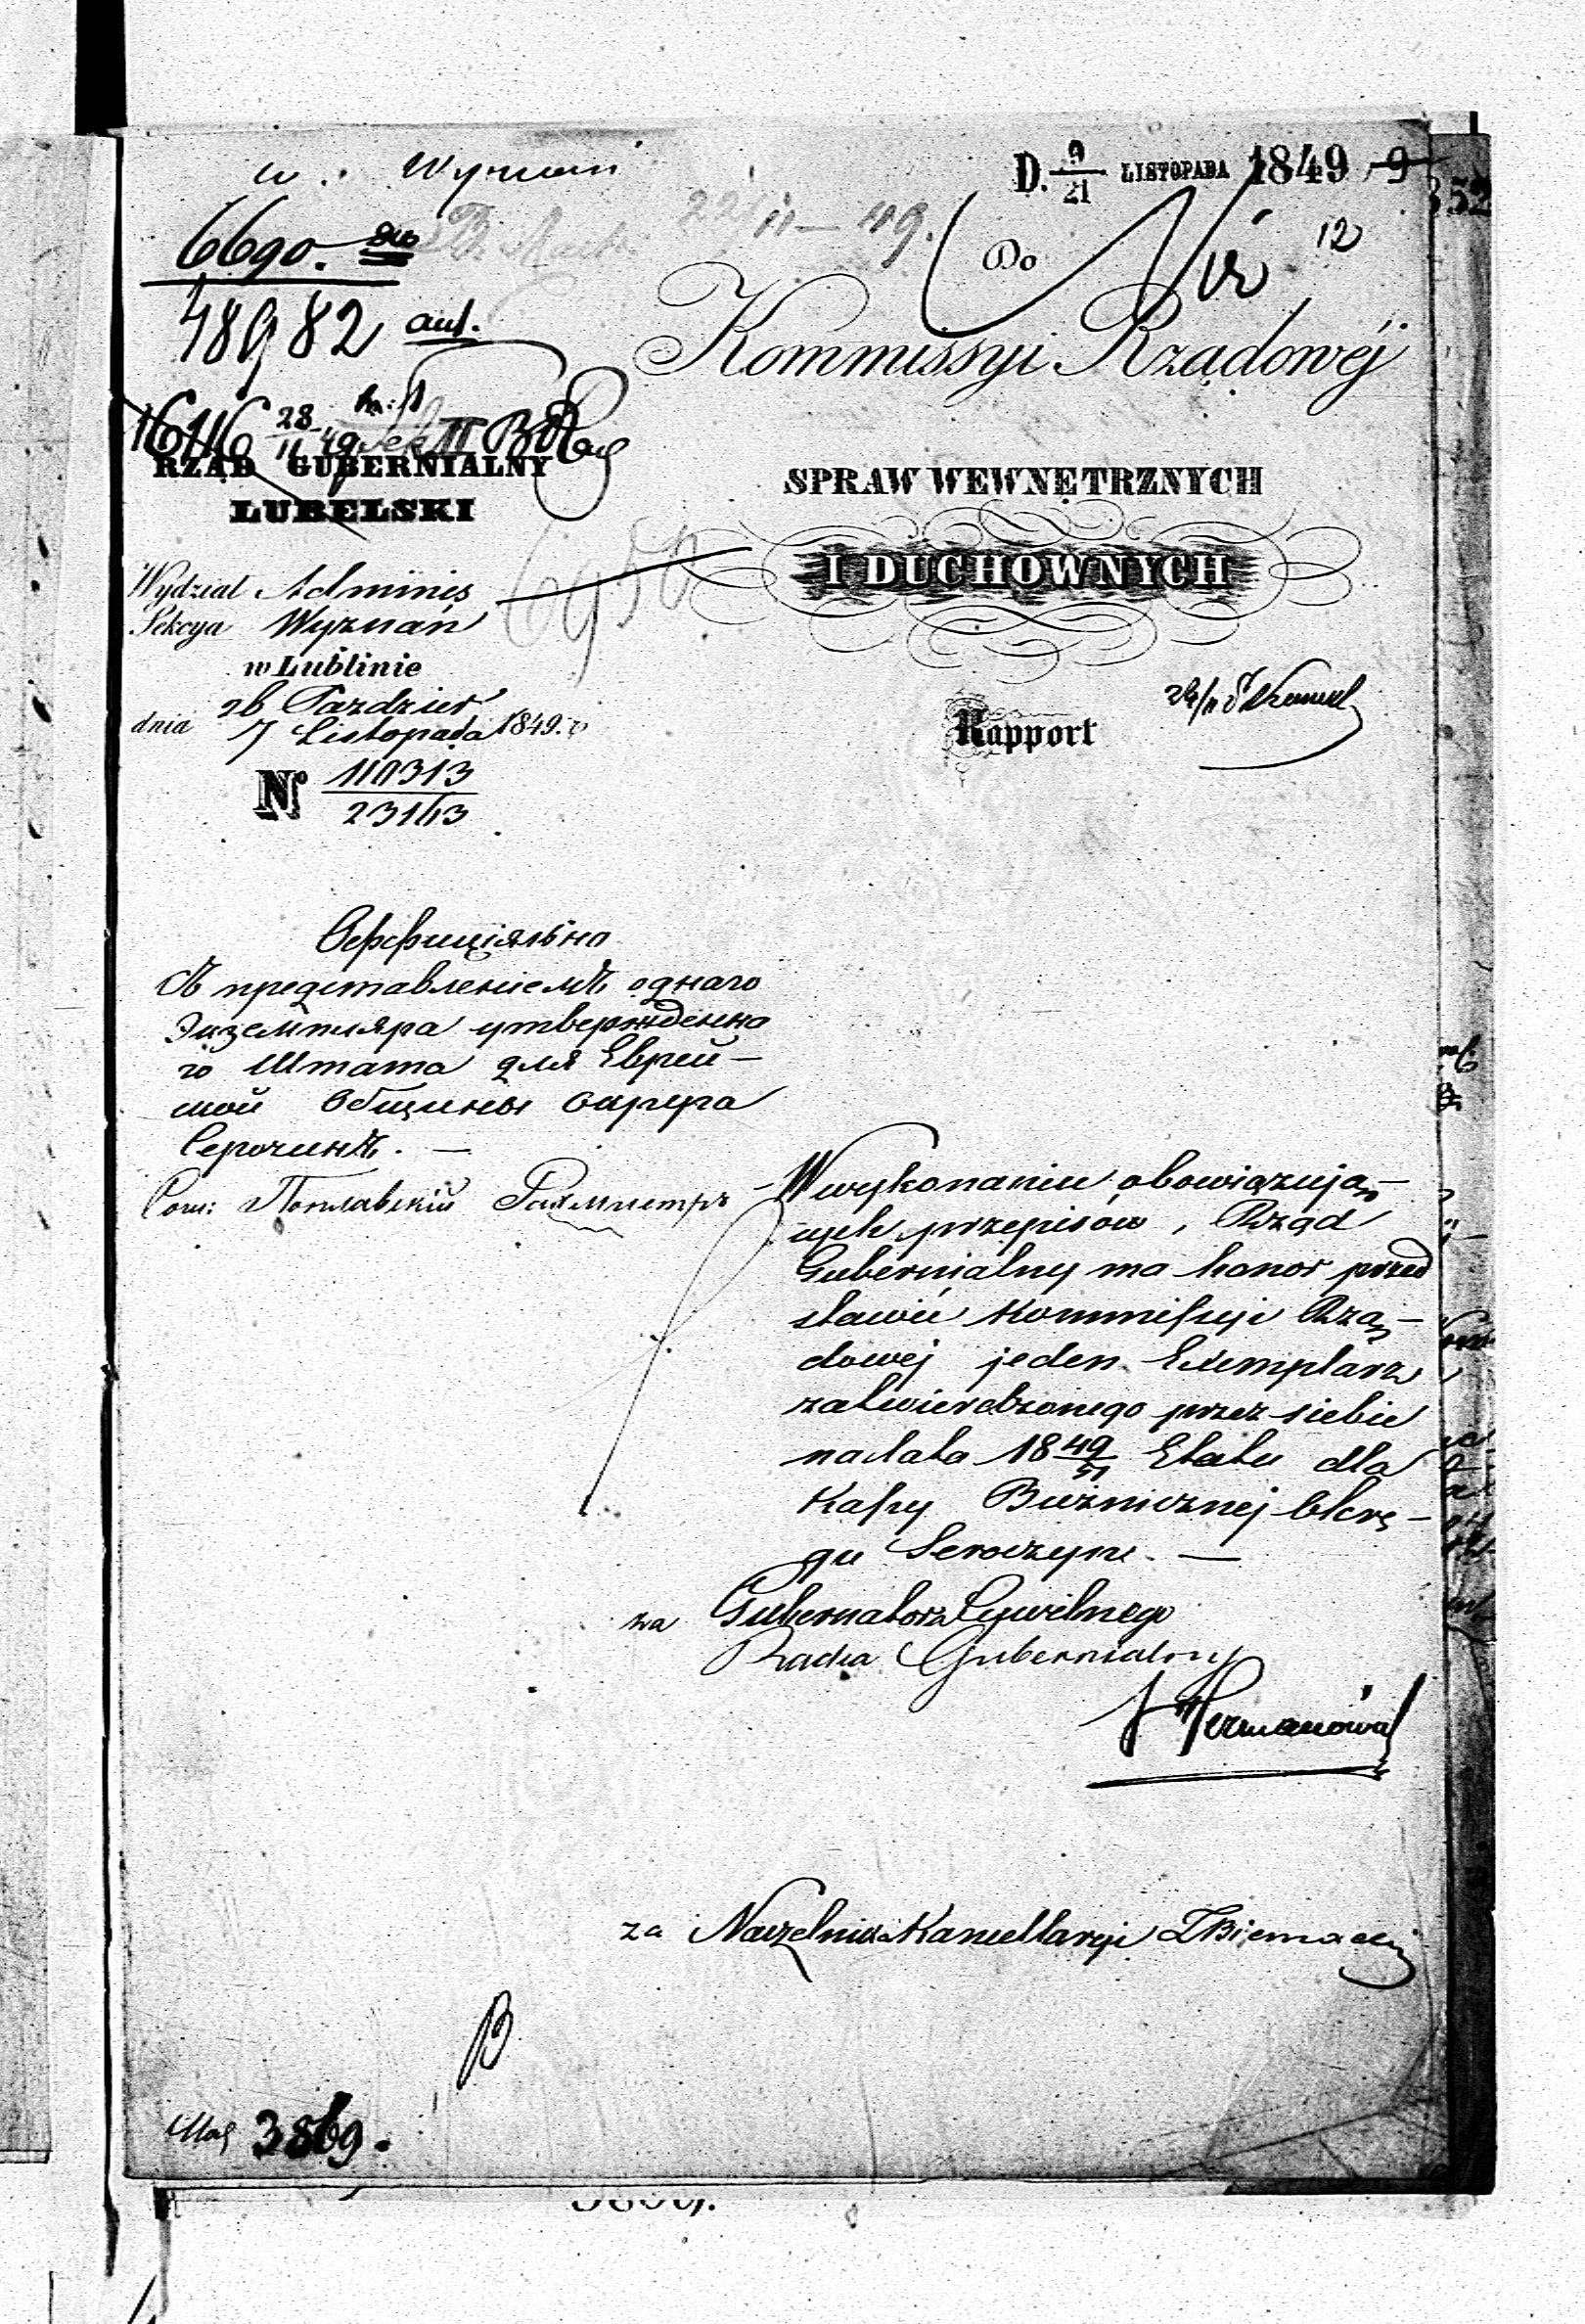 w. Wyznań
D. 9/21 LISTOPADA 1849
6690.
22/11 – 49.
Do
12
48982 aut.
Kommissyi Rządowéj
16116 28/11 49
RZĄD GUBERNIALNY
LUBELSKI
SPRAW WEWNĘTRZNYCH
I DUCHOWNYCH
6950
Wydział Adminis
Sekcya Wyznań
w Lublinie
dnia 26 Paździer / 7 Listopada 1849 r.
Rapport
N 110313 / 23163
Оффиціяльно
Съ представленіемъ однаго
Экземпляра утвержденна
го Штата для Еврей–
ской Общины округа
Серочинъ. —
Сош: Поплавскій
W wykonaniu obowiązują–
cych przepisów, Rząd
Gubernialny ma honor przed
stawić Kommissyi Rzą–
dowej jeden Exemplarz
zatwierdzonego przez siebie
na lata 1849/51 Etatu dla
Kassy Bużniczney Okrę–
gu Seroczyn. —
za Gubernatora Cywilnego
Radca Gubernialny
za Naczelnika Kancellaryi
B
3869.